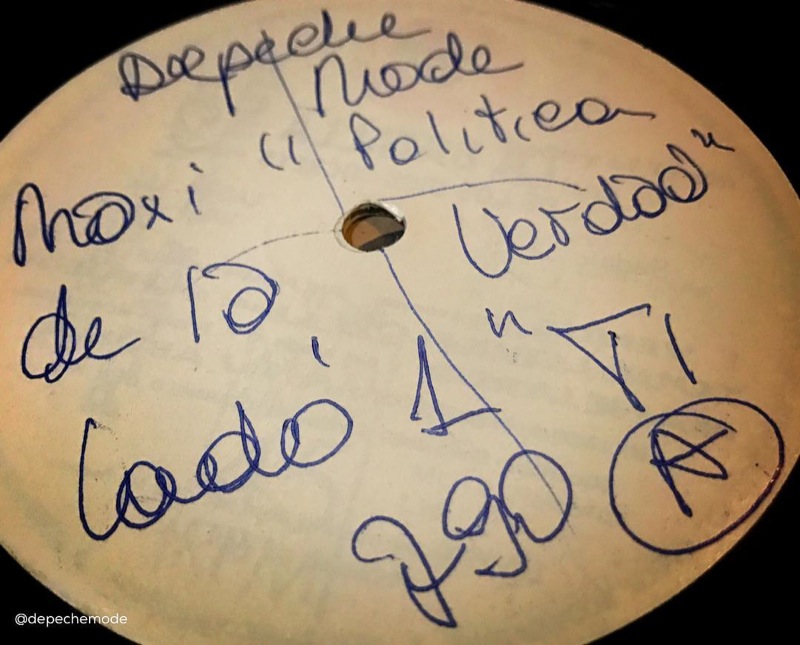 Depeche
Mode
Maxi "Politica
de la Verdad"
Lado 1 "T1
A
@depechemode